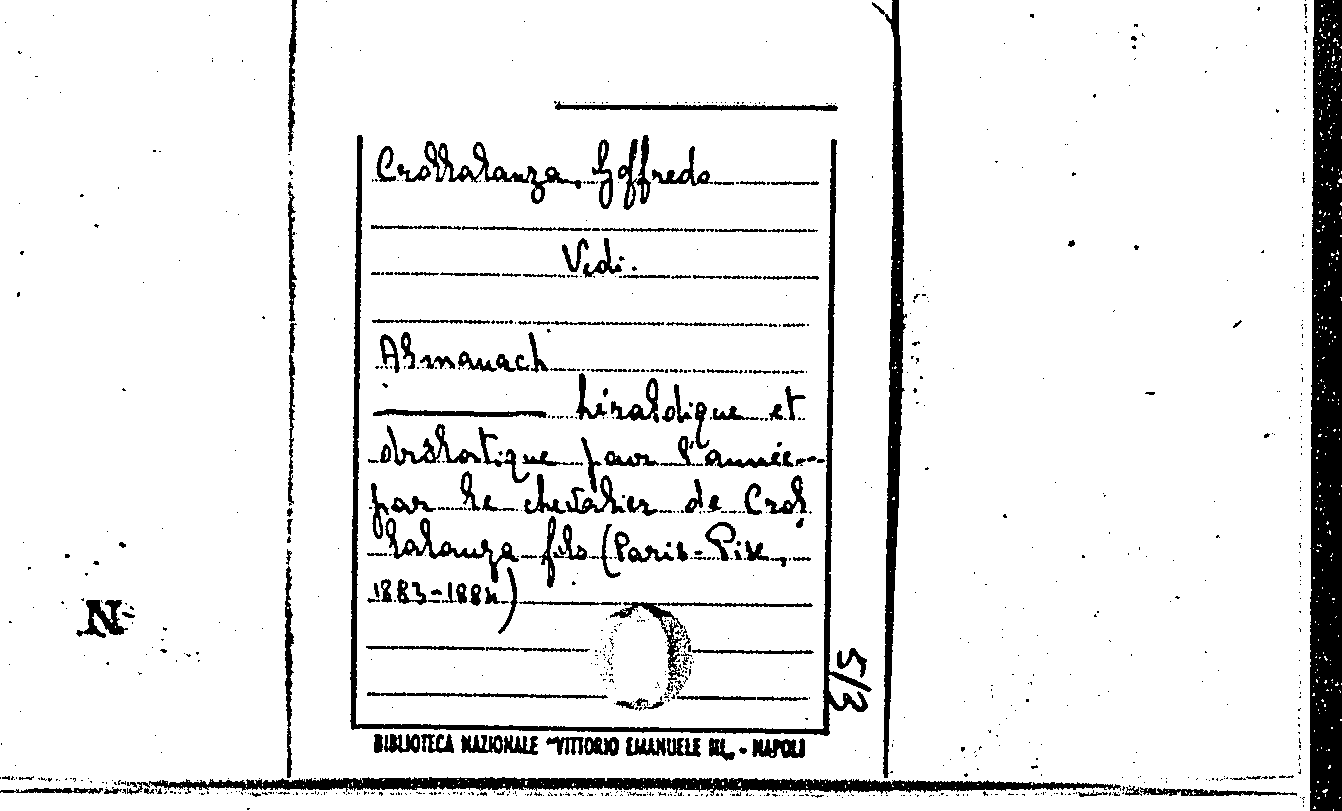 Crollalanza, Goffredo
Vedi.
Almanach
——— héraldique et
drålatique pour l'année...
par le chevalier de Crol
lalanza fils (Paris-Pise,
1883-1884)
5/3
BIBLIOTECA NAZIONALE "VITTORIO EMANUELE III„ - NAPOLI
N